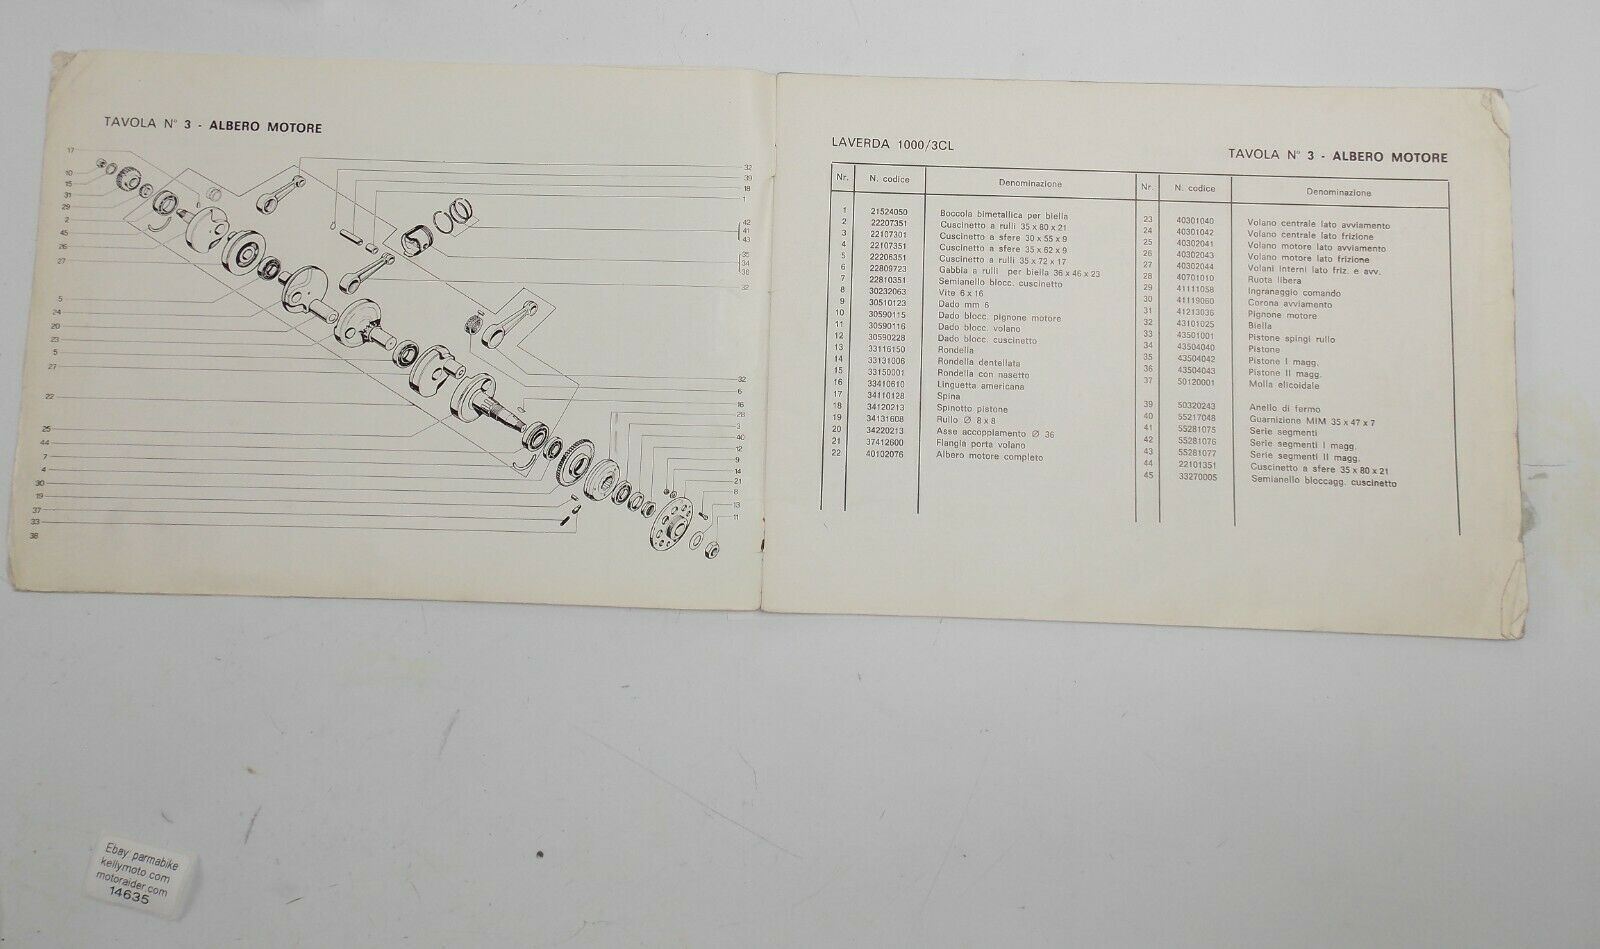 TAVOLA N° 3 - ALBERO MOTORE
17
10
15
31
29
2
45
26
27
5
24
20
23
5
27
22
25
44
7
4
30
19
37
33
38
32
39
18
1
42
41
43
35
34
36
32
32
6
16
28
3
40
12
9
14
21
8
13
11
LAVERDA 1000/3CL
TAVOLA N° 3 - ALBERO MOTORE
Nr. N. codice Denominazione
1 21524050 Boccola bimetallica per biella
2 22207351 Cuscinetto a rulli 35 x 80 x 21
3 22107301 Cuscinetto a sfere 30 x 55 x 9
4 22107351 Cuscinetto a sfere 35 x 62 x 9
5 22206351 Cuscinetto a rulli 35 x 72 x 17
6 22809723 Gabbia a rulli per biella 36 x 46 x 23
7 22810351 Semianello blocc. cuscinetto
8 30232063 Vite 6 x 16
9 30510123 Dado mm 6
10 30590115 Dado blocc. pignone motore
11 30590116 Dado blocc. volano
12 30590228 Dado blocc. cuscinetto
13 33116150 Rondella
14 33131006 Rondella dentellata
15 33150001 Rondella con nasetto
16 33410610 Linguetta americana
17 34110128 Spina
18 34120213 Spinotto pistone
19 34131608 Rullo Ø 8 x 8
20 34220213 Asse accoppiamento Ø 36
21 37412600 Flangia porta volano
22 40102076 Albero motore completo
Nr. N. codice Denominazione
23 40301040 Volano centrale lato avviamento
24 40301042 Volano centrale lato frizione
25 40302041 Volano motore lato avviamento
26 40302043 Volano motore lato frizione
27 40302044 Volani interni lato friz. e avv.
28 40701010 Ruota libera
29 41111058 Ingranaggio comando
30 41119060 Corona avviamento
31 41213036 Pignone motore
32 43101025 Biella
33 43501001 Pistone spingi rullo
34 43504040 Pistone
35 43504042 Pistone I magg.
36 43504043 Pistone II magg.
37 50120001 Molla elicoidale
39 50320243 Anello di fermo
40 55217048 Guarnizione MIM 35 x 47 x 7
41 55281075 Serie segmenti
42 55281076 Serie segmenti I magg.
43 55281077 Serie segmenti II magg.
44 22101351 Cuscinetto a sfere 35 x 80 x 21
45 33270005 Semianello bloccagg. cuscinetto
Ebay: parmabike
kellymoto.com
motoraider.com
14635